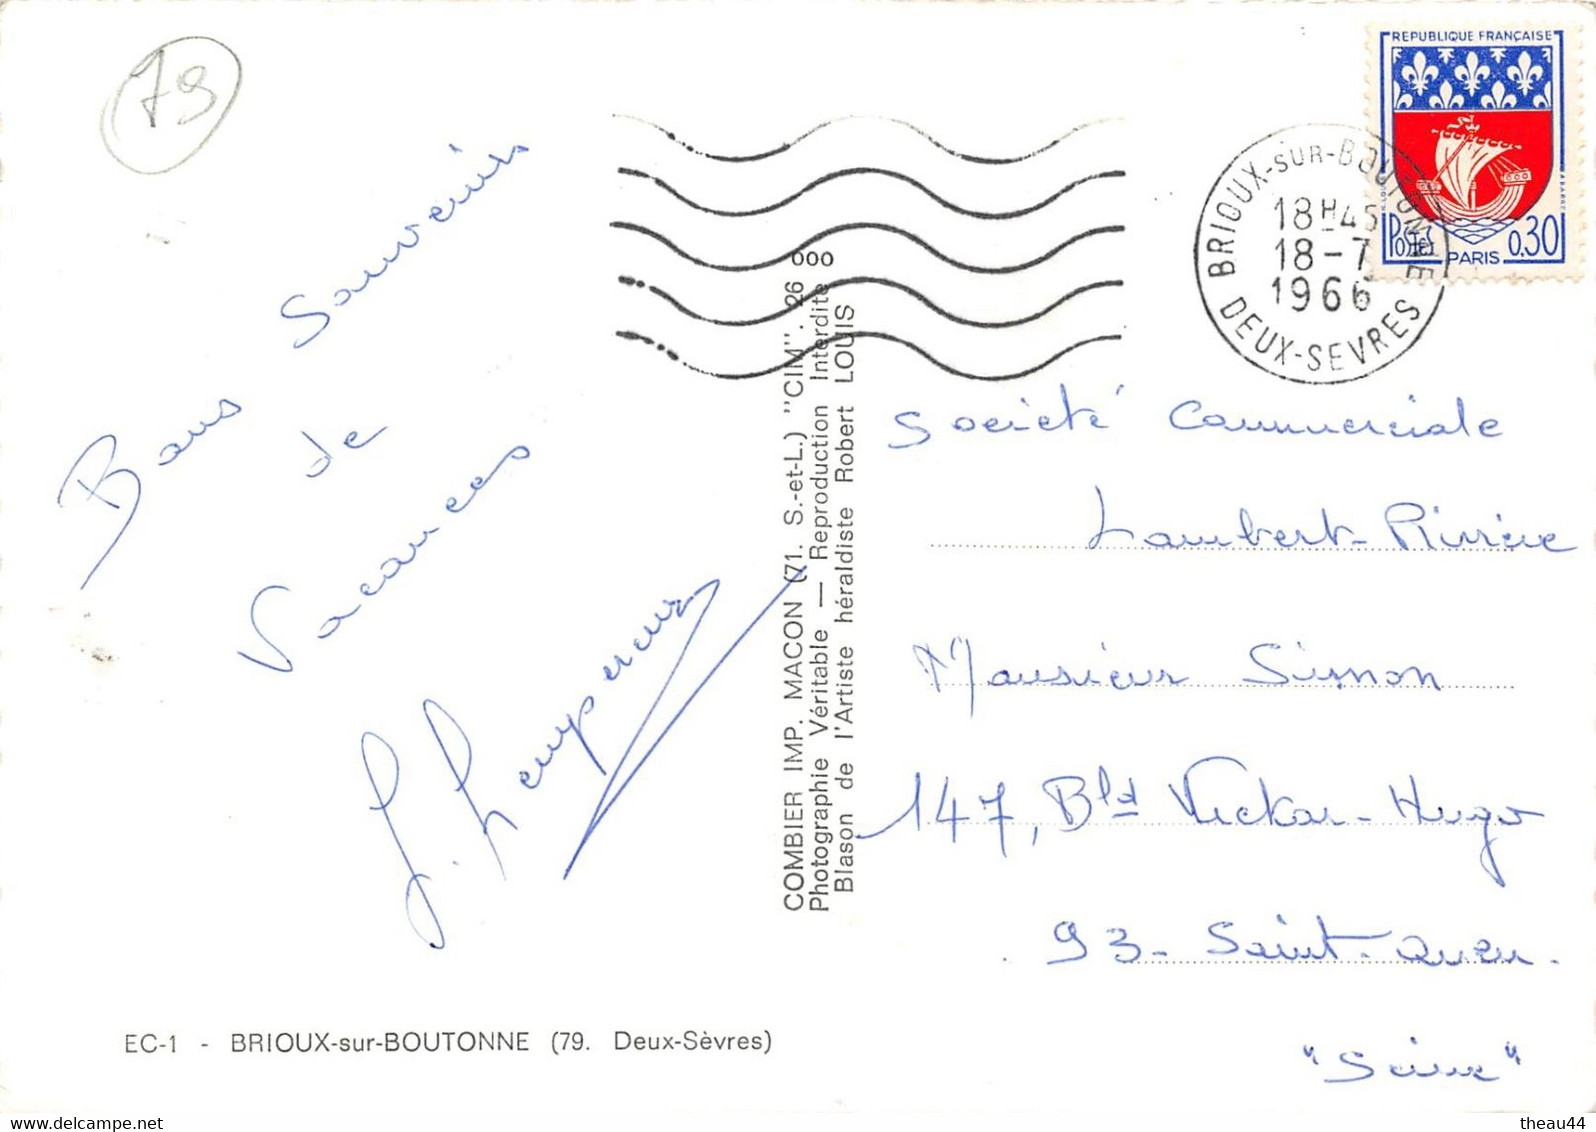 79
REPUBLIQUE FRANÇAISE
POSTES
0,30
PARIS
BRIOUX-SUR-BOUTONNE
18H45
18-7
1966
DEUX-SEVRES
Bons Souvenirs
de
Vacances
COMBIER IMP. MACON (71. S.-et-L.) "CIM". 26 000
Photographie Véritable — Reproduction Interdite
Blason de l'Artiste héraldiste Robert LOUIS
Société Commerciale
Lambert-Rivière
Monsieur Simon
147, Bld Vicktor-Hugo
93-Saint-Ouen.
"Seine"
EC-1 - BRIOUX-sur-BOUTONNE (79. Deux-Sèvres)
www.delcampe.net
theau44